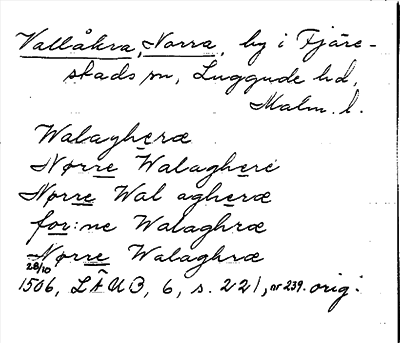 Vallåkra, Norra, by i Fjäre-
stads sn, Luggude hd,
Malm. l.
Walagheræ
Nørre Walaghere
Nørre Wal agheræ
for:ne Walaghræ
Nørre Walaghræ
28/10
1506, LÄUB, 6, s. 221, nr 239. orig: